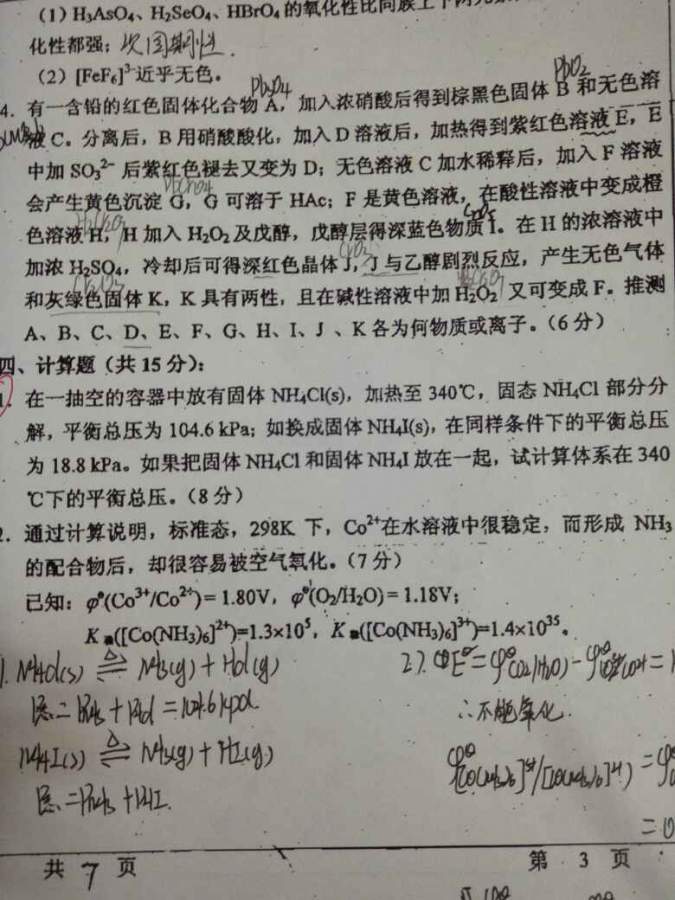 (1) H₃AsO₄、H₂SeO₄、HBrO₄ 的氧化性比同族上下两元素
化性都强; 次周期性.
(2) [FeF₆]³⁻近乎无色。
Pb₃O₄ PbO₂
4. 有一含铅的红色固体化合物 A, 加入浓硝酸后得到棕黑色固体 B 和无色溶
液 C。分离后, B 用硝酸酸化, 加入 D 溶液后, 加热得到紫红色溶液 E, E
中加 SO₃²⁻ 后紫红色褪去又变为 D; 无色溶液 C 加水稀释后, 加入 F 溶液
PbCrO₄
会产生黄色沉淀 G, G 可溶于 HAc; F 是黄色溶液, 在酸性溶液中变成橙
色溶液 H, H 加入 H₂O₂ 及戊醇, 戊醇层得深蓝色物质 I。在 H 的浓溶液中
CrO₃
加浓 H₂SO₄, 冷却后可得深红色晶体 J, J 与乙醇剧烈反应, 产生无色气体
和灰绿色固体 K, K 具有两性, 且在碱性溶液中加 H₂O₂ 又可变成 F。推测
A、B、C、D、E、F、G、H、I、J 、K 各为何物质或离子。(6 分)
四、计算题 (共 15 分):
1. 在一抽空的容器中放有固体 NH₄Cl(s), 加热至 340℃, 固态 NH₄Cl 部分分
解, 平衡总压为 104.6 kPa; 如换成固体 NH₄I(s), 在同样条件下的平衡总压
为 18.8 kPa。如果把固体 NH₄Cl 和固体 NH₄I 放在一起, 试计算体系在 340
℃下的平衡总压。(8 分)
2. 通过计算说明, 标准态, 298K 下, Co²⁺在水溶液中很稳定, 而形成 NH₃
的配合物后, 却很容易被空气氧化。(7 分)
已知: φ°(Co³⁺/Co²⁺)= 1.80V, φ°(O₂/H₂O)= 1.18V;
K 稳([Co(NH₃)₆]²⁺)=1.3×10⁵, K 稳([Co(NH₃)₆]³⁺)=1.4×10³⁵。
1. NH₄Cl(s) ⇌ NH₃(g) + HCl(g) 2). E°=φ°(O₂/H₂O)-φ°Co³⁺/Co²⁺=
P总=PNH₃+PHCl=104.6kpa ∴不能氧化.
NH₄I(s) ⇌ NH₃(g) + HI(g) φ°[Co(NH₃)₆]³⁺/[Co(NH₃)₆]²⁺) =φ
P总=PNH₃+PHI. =0
共 7 页 第 3 页